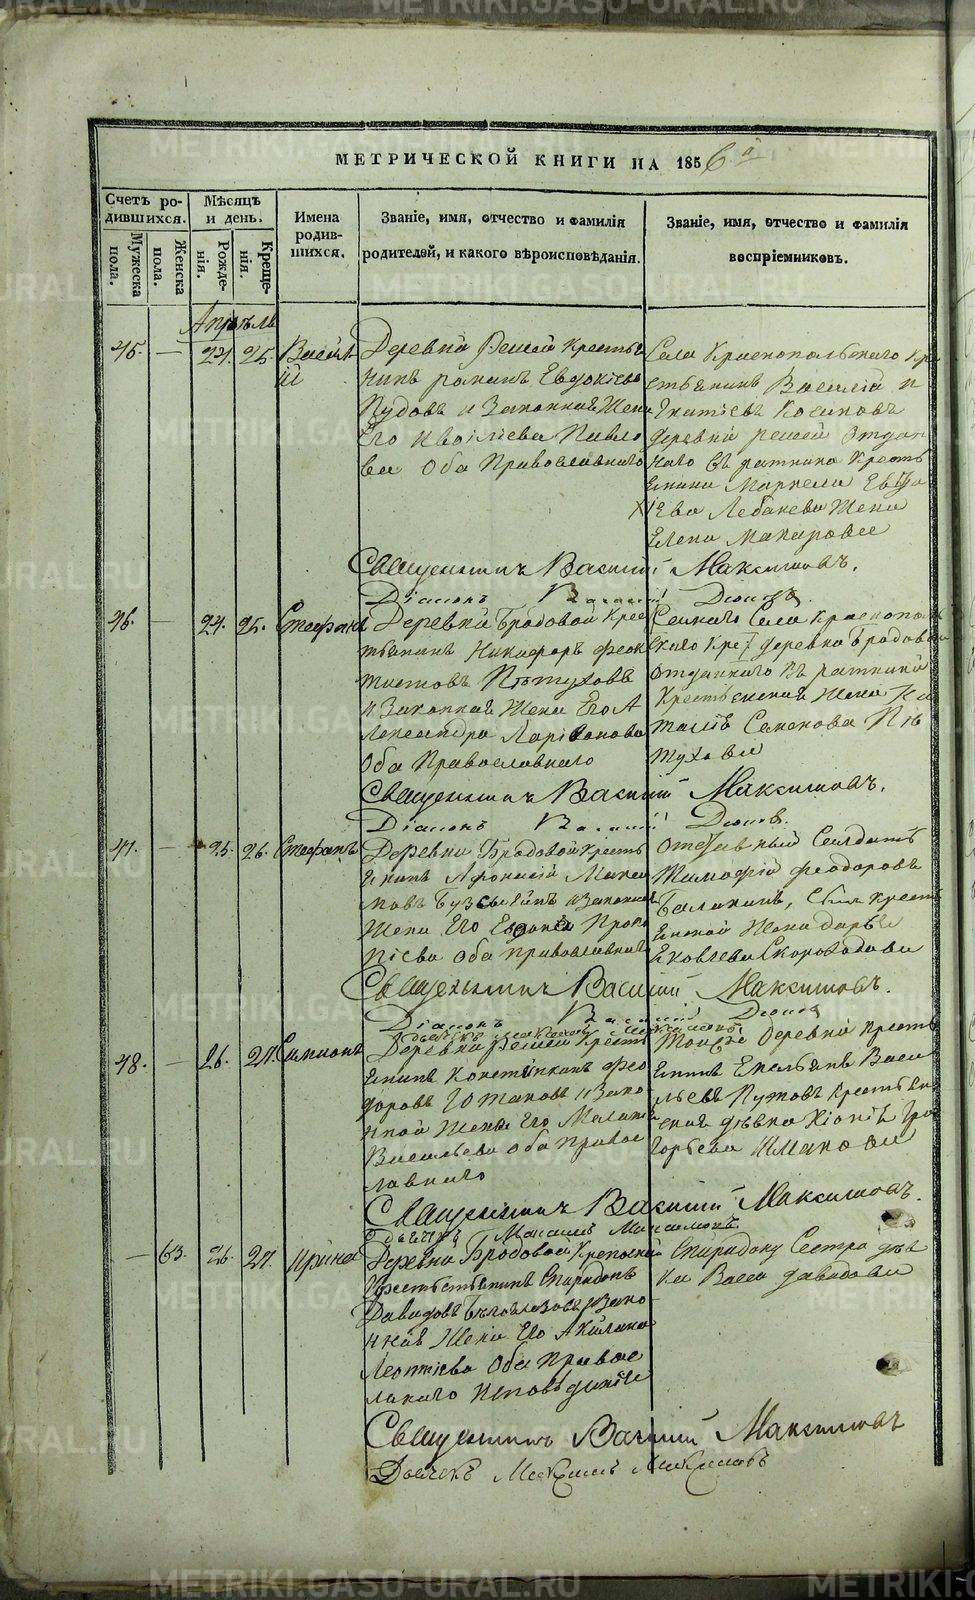 METRIKI.GASO-URAL.RU
МЕТРИЧЕСКОЙ КНИГИ НА 1856 й
Счетъ ро-
дившихся.
Мужеска
пола.
Женска
пола.
Мѣсяцъ
и день.
Рожде-
нія.
Креще-
нія.
Имена
родив-
шихся.
Званіе, имя, отчество и фамилія
родителей, и какого вѣроисповѣданія.
Званіе, имя, отчество и фамилія
воспріемниковъ.
Апрѣль
45. — 24. 25. Василі
й
Деревни Крестья
нинъ романъ Евдокіевъ
Пудовъ и Законная Жена
Его Павло
ва Оба Православнаго
Села Краснопольскаго Кре
стьянинъ Василій И
гнатіевъ Косиковъ
деревни Отдан
наго въ ратники Кресть
янина Маркела Евдо
кіева Лебакева Жена
Елена Макаровае
Священникъ Василій Максимовъ.
Діаконъ Василій
46. — 24. 25. Стефанъ
Деревни Бродовой Крес
тьянинъ Никифоръ Феок
тистовъ Пѣтуховъ
и Законная Жена Его А
лександра Ларіонова
Оба Православнаго
Села Краснополь
скаго Крес деревни Бродовой
отданнаго въ ратники
Крестьянская Жена На
талія Семенова Пѣ
тухова
Священникъ Василій Максимовъ.
Діаконъ Василій
47. — 25. 26. Стефанъ
Деревни Бродовой Кресть
янинъ Афонасій Макси
мовъ и Законная
Жена Его Евдокія Проко
піева Оба православнаго
отставный Салдатъ
Тимофій Феодоровъ
Балакинъ, Крестья
нской Жена Дарья
Яковлева Скороходова
Священникъ Василій Максимовъ.
Діаконъ Василій
Дьячекъ Максимъ Максимовъ
48. — 26. 27. Симионъ
Деревни Кресть
янинъ Константинъ Фео
доровъ Южаковъ и Зако
нной Жена Его Малань
Васильева Оба Правос
лавнаго
Тойже Деревни Кресть
янинъ Емельянъ Васи
льевъ Крестьян
ская дѣвка Хіонія Гри
горьева Шмакова
Священникъ Василій Максимовъ.
Дьячекъ Максимъ Максимовъ
— 63. 26. 27. Ирина
Деревни Бродовой
Спиридонъ
Давидовъ Зако
нная Жена Его Акилина
Леонтіева Оба Правос
лавнаго Исповѣданія
Спиридону Сестра дѣв
ка Васса Давидова
Священникъ Василій Максимовъ
Дьячекъ Максимъ Максимовъ